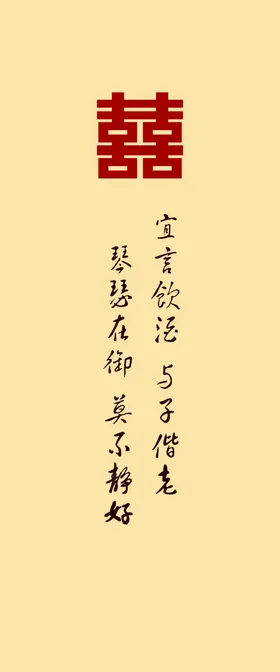 囍
宜言飲酒 与子偕老
琴瑟在御 莫不静好